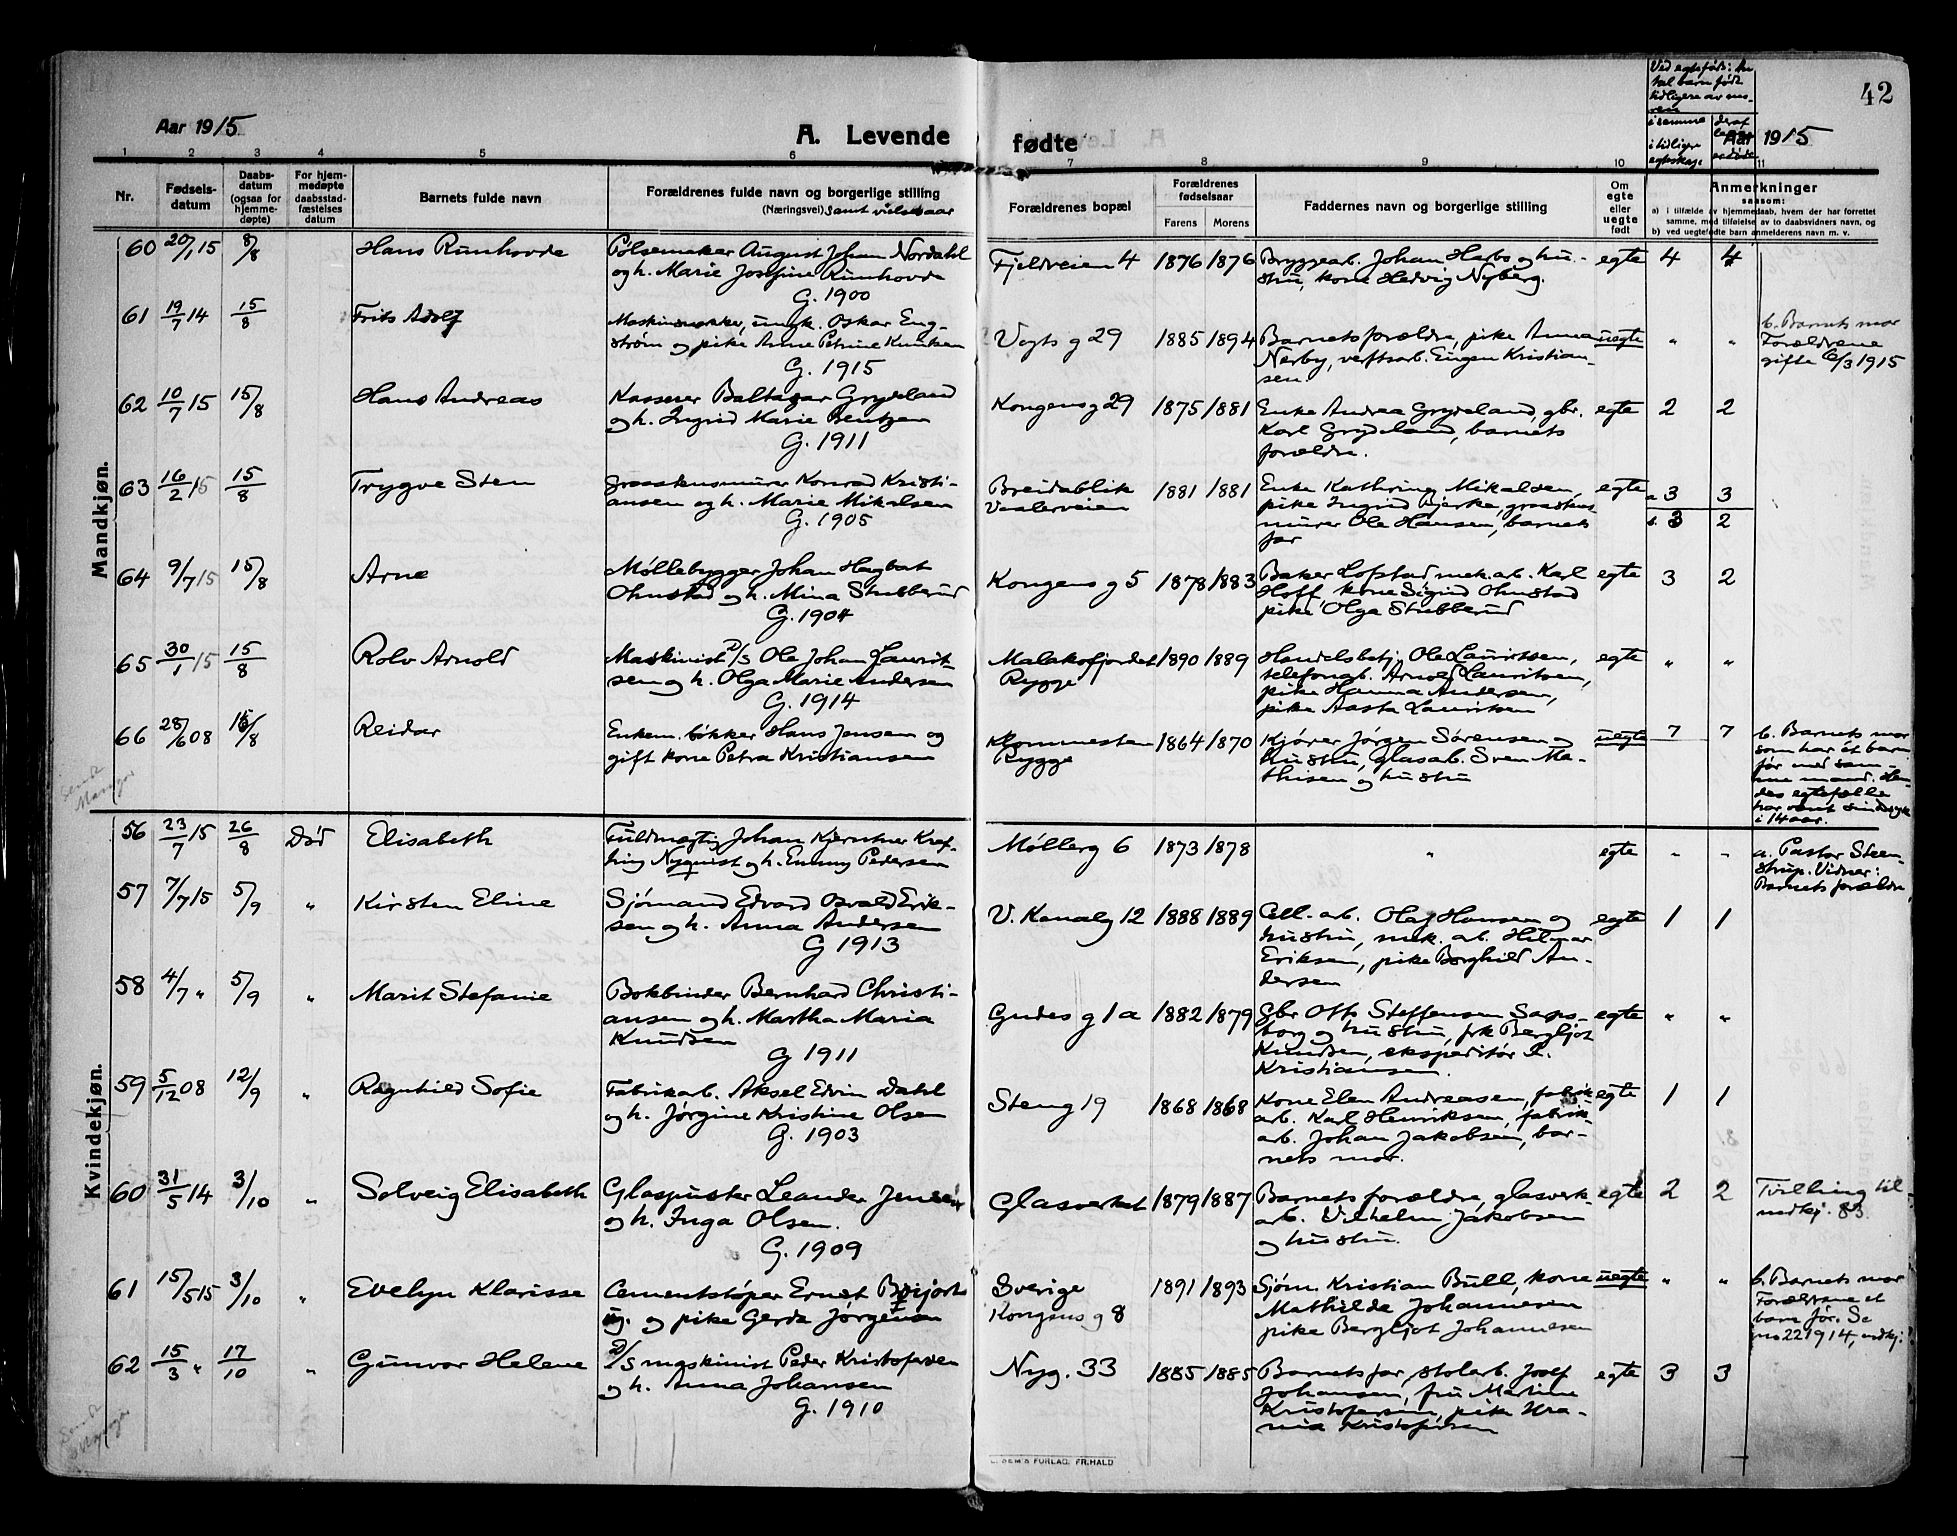 42
Aar 1915
A. Levende fødte
Aar 1915
Ved egtefødte: An-
tal barn født
tidligere av mo-
ren
i samme
i tidligere
egtesk.
deraf
1 2 3 4 5 6 7 8 9 10 11
Nr.
Fødsels-
datum
Daabs-
datum
(ogsaa for
hjemme-
døpte)
For hjem-
medøpte
daabsstad-
fæstelses
datum
Barnets fulde navn
Forældrenes fulde navn og borgerlige stilling
(Næringsvei) samt vielsesaar
Forældrenes bopæl
Forældrenes
fødselsaar
Farens Morens
Faddernes navn og borgerlige stilling
Om
egte
eller
uegte
født
Anmerkninger
saasom:
a) i tilfælde av hjemmedaab, hvem der har forrettet
samme, med tilføielse av to daabsvidners navn, og
b) ved uegtefødte barn anmelderens navn m. v.
Mandkjøn.
60 20/1 15 8/8 Hans Runhovde
Pølsemaker August Johan Nordahl
og h. Marie Josefine Runhovde
G. 1900
Fjeldveien 4 1876 1876
Bryggearb. Johan Herbs og hu-
stru, kone Hedvig Nyberg.
egte 4 4
61 19/7 14 15/8 Frits Adolf
Maskinsnekker, ungk. Oskar Eng-
strøm og pike Anne Petrine Knutsen
G. 1915
Vogts g 29 1885 1894
Barnets forældre, pike Anna
Nerby, verftsarb. Eugen Kristian-
sen.
uegte " "
b. Barnets mor
Forældrene
gifte 6/3 1915
62 10/7 15 15/8 Hans Andreas
Kasserer Baltazar Grydeland
og h. Ingrid Marie Bentzen
G. 1911
Kongens g 29 1875 1881
Enke Andrea Grydeland, gbr.
Karl Grydeland, barnets
forældre.
egte 2 2
63 16/2 15 15/8 Trygve Sten
Graastensmurer Konrad Kristi-
ansen og h. Marie Mikalsen
G. 1905
Breidablik
Vaalerveien
1881 1881
Enke Kathrine Mikalsen,
pike Ingrid Bjerke, graastens-
murer Ole Hansen, barnets
far
egte a 3 3
b. 3 2
64 9/7 15 15/8 Arne
Møllebygger Johan Hagbart
Ohnstad og h. Mina Stubberud
G. 1904
Kongens g 5 1878 1883
Baker Lofstad, mek. arb. Karl
Hoff, kone Sigrid Ohnstad
pike Olga Stubberud
egte 3 2
65 30/1 15 15/8 Rolv Arnold
Maskinist D/S Ole Johan Laurit-
sen og h. Olga Marie Andersen
G. 1914
Malakofjordet
Rygge
1890 1889
Handelsbetj. Ole Lauritsen,
telefonarb. Arnold Lauritsen,
pike Hanna Andersen,
pike Aasta Lauritsen
egte " "
66 28/6 08 15/8 Reidar
Enkem. bøkker Hans Jensen og
gift kone Petra Kristiansen
Klommesten
Rygge
1864 1870
Kjører Jørgen Sørensen og
hustru, glasarb. Sven Ma-
thisen og hustru
uegte 7 7
b. Barnets mor
som har ét barn
før med sam-
me mand. Hen-
des egtefælle
har været sindssyk
i 14 aar.
Kvindekjøn.
56 23/7 15 26/8 Død Elisabeth
Fuldmægtig Johan Kjerulf Kraf-
ting Nyquist og h. Emmy Pedersen
Møllerg 6 1873 1878 "
egte " "
a. Pastor Steen-
strup. Vidner:
Barnets forældre
57 7/7 15 5/9 " Kirsten Eline
Sjømand Edvard Osvald Erik-
sen og h. Anna Andersen
G 1913
V. Kanalg 12 1888 1889
Cell. arb. Olaf Hansen og
hustru, mek. arb. Hilmar
Eriksen, pike Borghild An-
dersen
egte 1 1
58 4/7 " 5/9 " Marit Stefanie
Bokbinder Bernhard Christi-
ansen og h. Martha Maria
Knudsen
G 1911
Gudes g 1a 1882 1879
Gbr Otto Steffensen Sarps-
borg og hustru, frk Bergljot
Knudsen, ekspeditør R.
Kristiansen.
egte " "
59 5/12 08 12/9 " Ragnhild Sofie
Fabrikarb. Aksel Edvin Dahl
og h. Jørgine Kristine Olsen
G. 1903
Steng 19 1868 1868
Kone Elen Andreasen, fabrik-
arb. Karl Henriksen, fabrik-
arb. Johan Jakobsen, bar-
nets mor.
egte 1 1
60 31/5 14 3/10 " Solveig Elisabeth
Glaspuster Leander Jensen
og h. Inga Olsen.
G. 1909
Glasverket 1879 1887
Barnets forældre, glasverk-
arb. Vilhelm Jakobsen
og hustru.
egte 2 2
Tvilling til
mdkj. 83.
61 15/5 15 3/10 " Evelyn Klarisse
Cementstøper Ernst
ug. og pike Gerda Jørgensen
Sverige
Kongens g 8
1891 1893
Sjøm. Kristian Bull, kone
Mathilde Johannesen
pike Bergljot Johannesen
uegte " "
b. Barnets mor
Forældrene et
barn før. Se
no 22 1914, mdkj.
62 15/3 " 17/10 " Gunvor Helene
D/S maskinist Peder Kristofersen
og h. Anna Johansen
G. 1910
Nyg. 33 1885 1885
Barnets far, stolarb. Josef
Johansen, fru Martine
Kristofersen, pike Hra-
nia Kristofersen
egte 3 3
FORLAG. FR. HALD